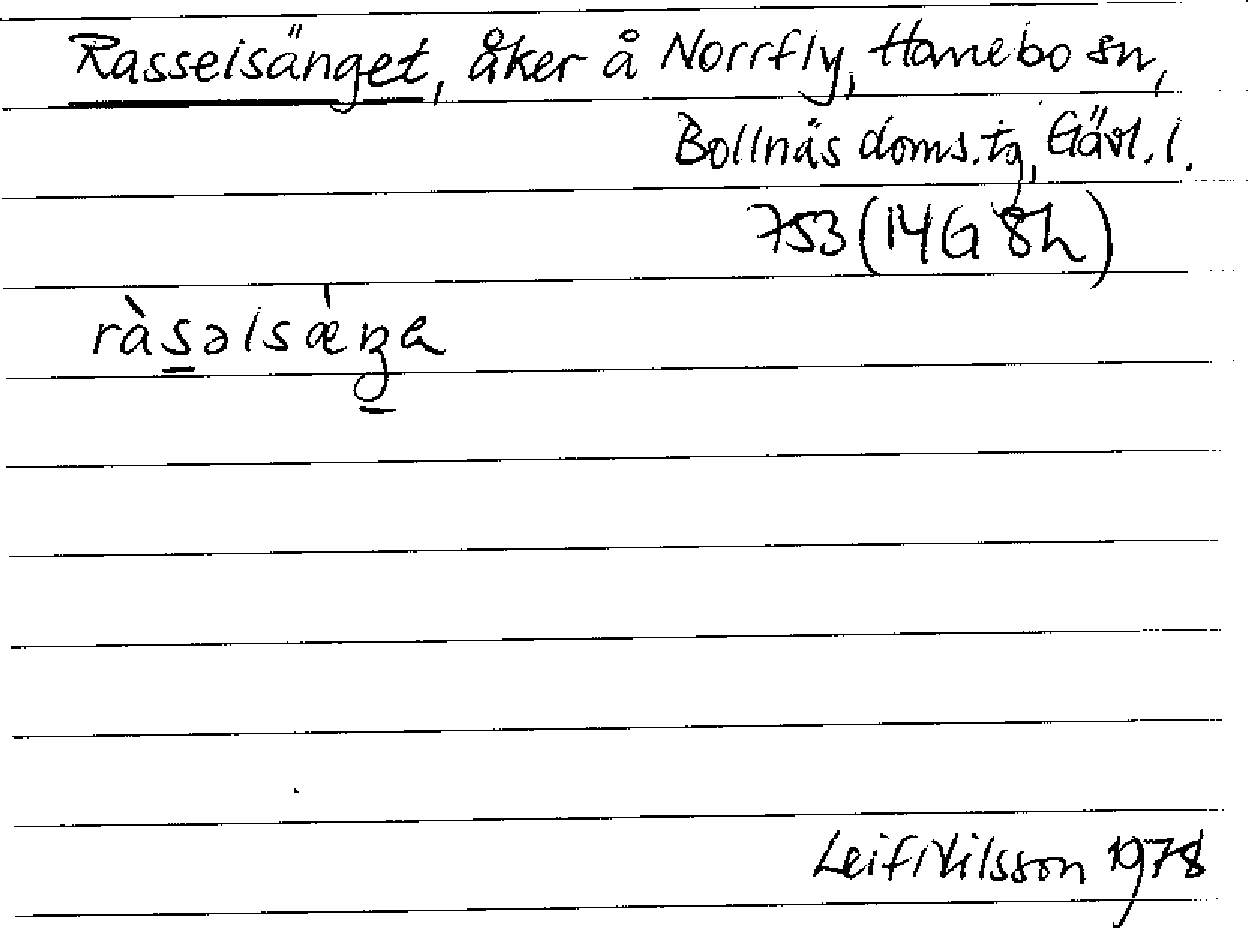 Rasselsänget, åker å Norrfly, Hanebo sn,
Bollnäs doms.tg, Gävl. l.
753 (14G 8h)
ràsəlsǽŋa
Leif Nilsson 1978